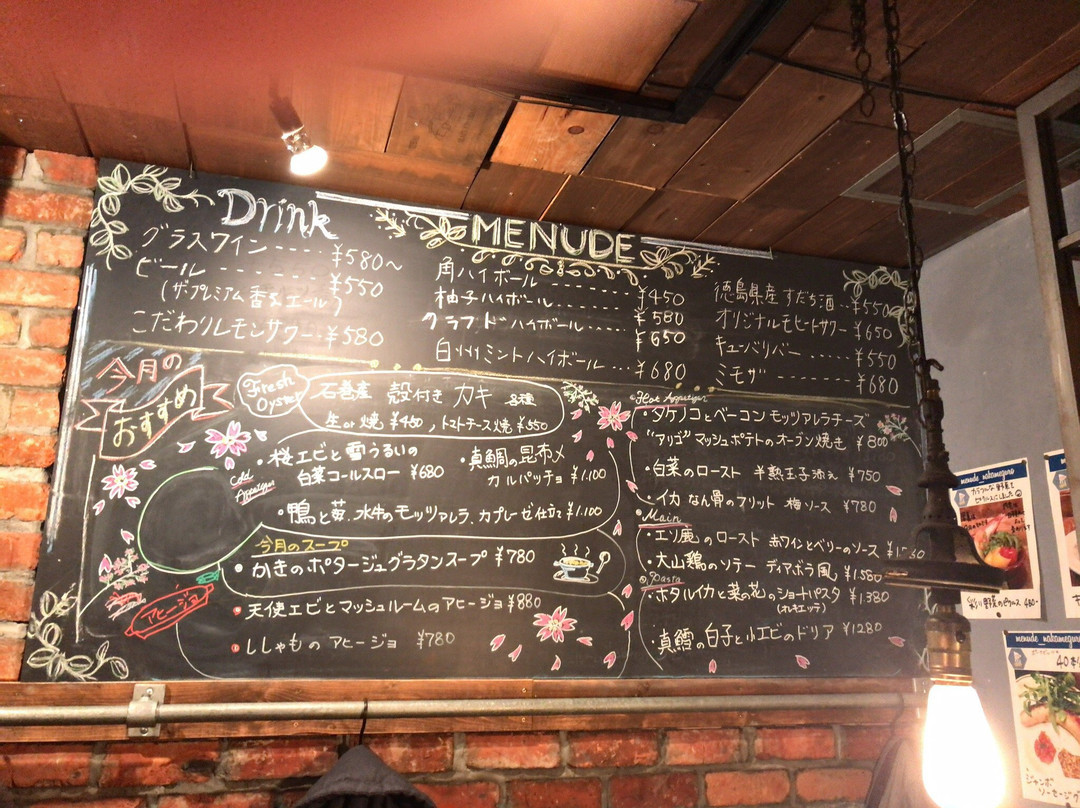 Drink
MENUDE
グラスワイン ---- ¥580〜
ビール -------- ¥550
(ザ・プレミアム香るエール)
こだわりレモンサワー - ¥580
角ハイボール ------- ¥450
柚子ハイボール ------ ¥580
クラフトハイボール ---- ¥650
白州ミントハイボール --- ¥680
徳島県産 すだち酒 -- ¥550
オリジナルモヒートサワー - ¥650
キューバリバー ----- ¥550
ミモザ -------- ¥680
今月の
おすすめ
Fresh
Oyster
石巻産 殻付き カキ 各種
生or焼 ¥460, トマトチーズ焼 ¥550
Cold
Appetizer
・桜エビと雪うるいの
白菜コールスロー ¥680
・真鯛の昆布〆
カルパッチョ ¥1.100
・鴨と苺、水牛のモッツァレラ、カプレーゼ仕立て ¥1.100
今月のスープ
・かきのポタージュグラタンスープ ¥780
アヒージョ
天使エビとマッシュルームのアヒージョ ¥880
ししゃもの アヒージョ ¥780
Hot Appetizer
・タケノコとベーコン モッツァレラチーズ
"アリゴ"マッシュポテトのオーブン焼き ¥800
・白菜のロースト 半熟玉子添え ¥750
・イカ なん骨のフリット 梅ソース ¥780
Main
・エゾ鹿のロースト 赤ワインとベリーのソース
・大山鶏のソテー ディアボラ風 ¥1.580
Pasta
・ホタルイカと菜の花のショートパスタ ¥1.380
(オレキエッテ)
・真鱈の白子と小エビのドリア ¥1280
menudo_nakameguro
menudo_nakameguro
ジャンボ